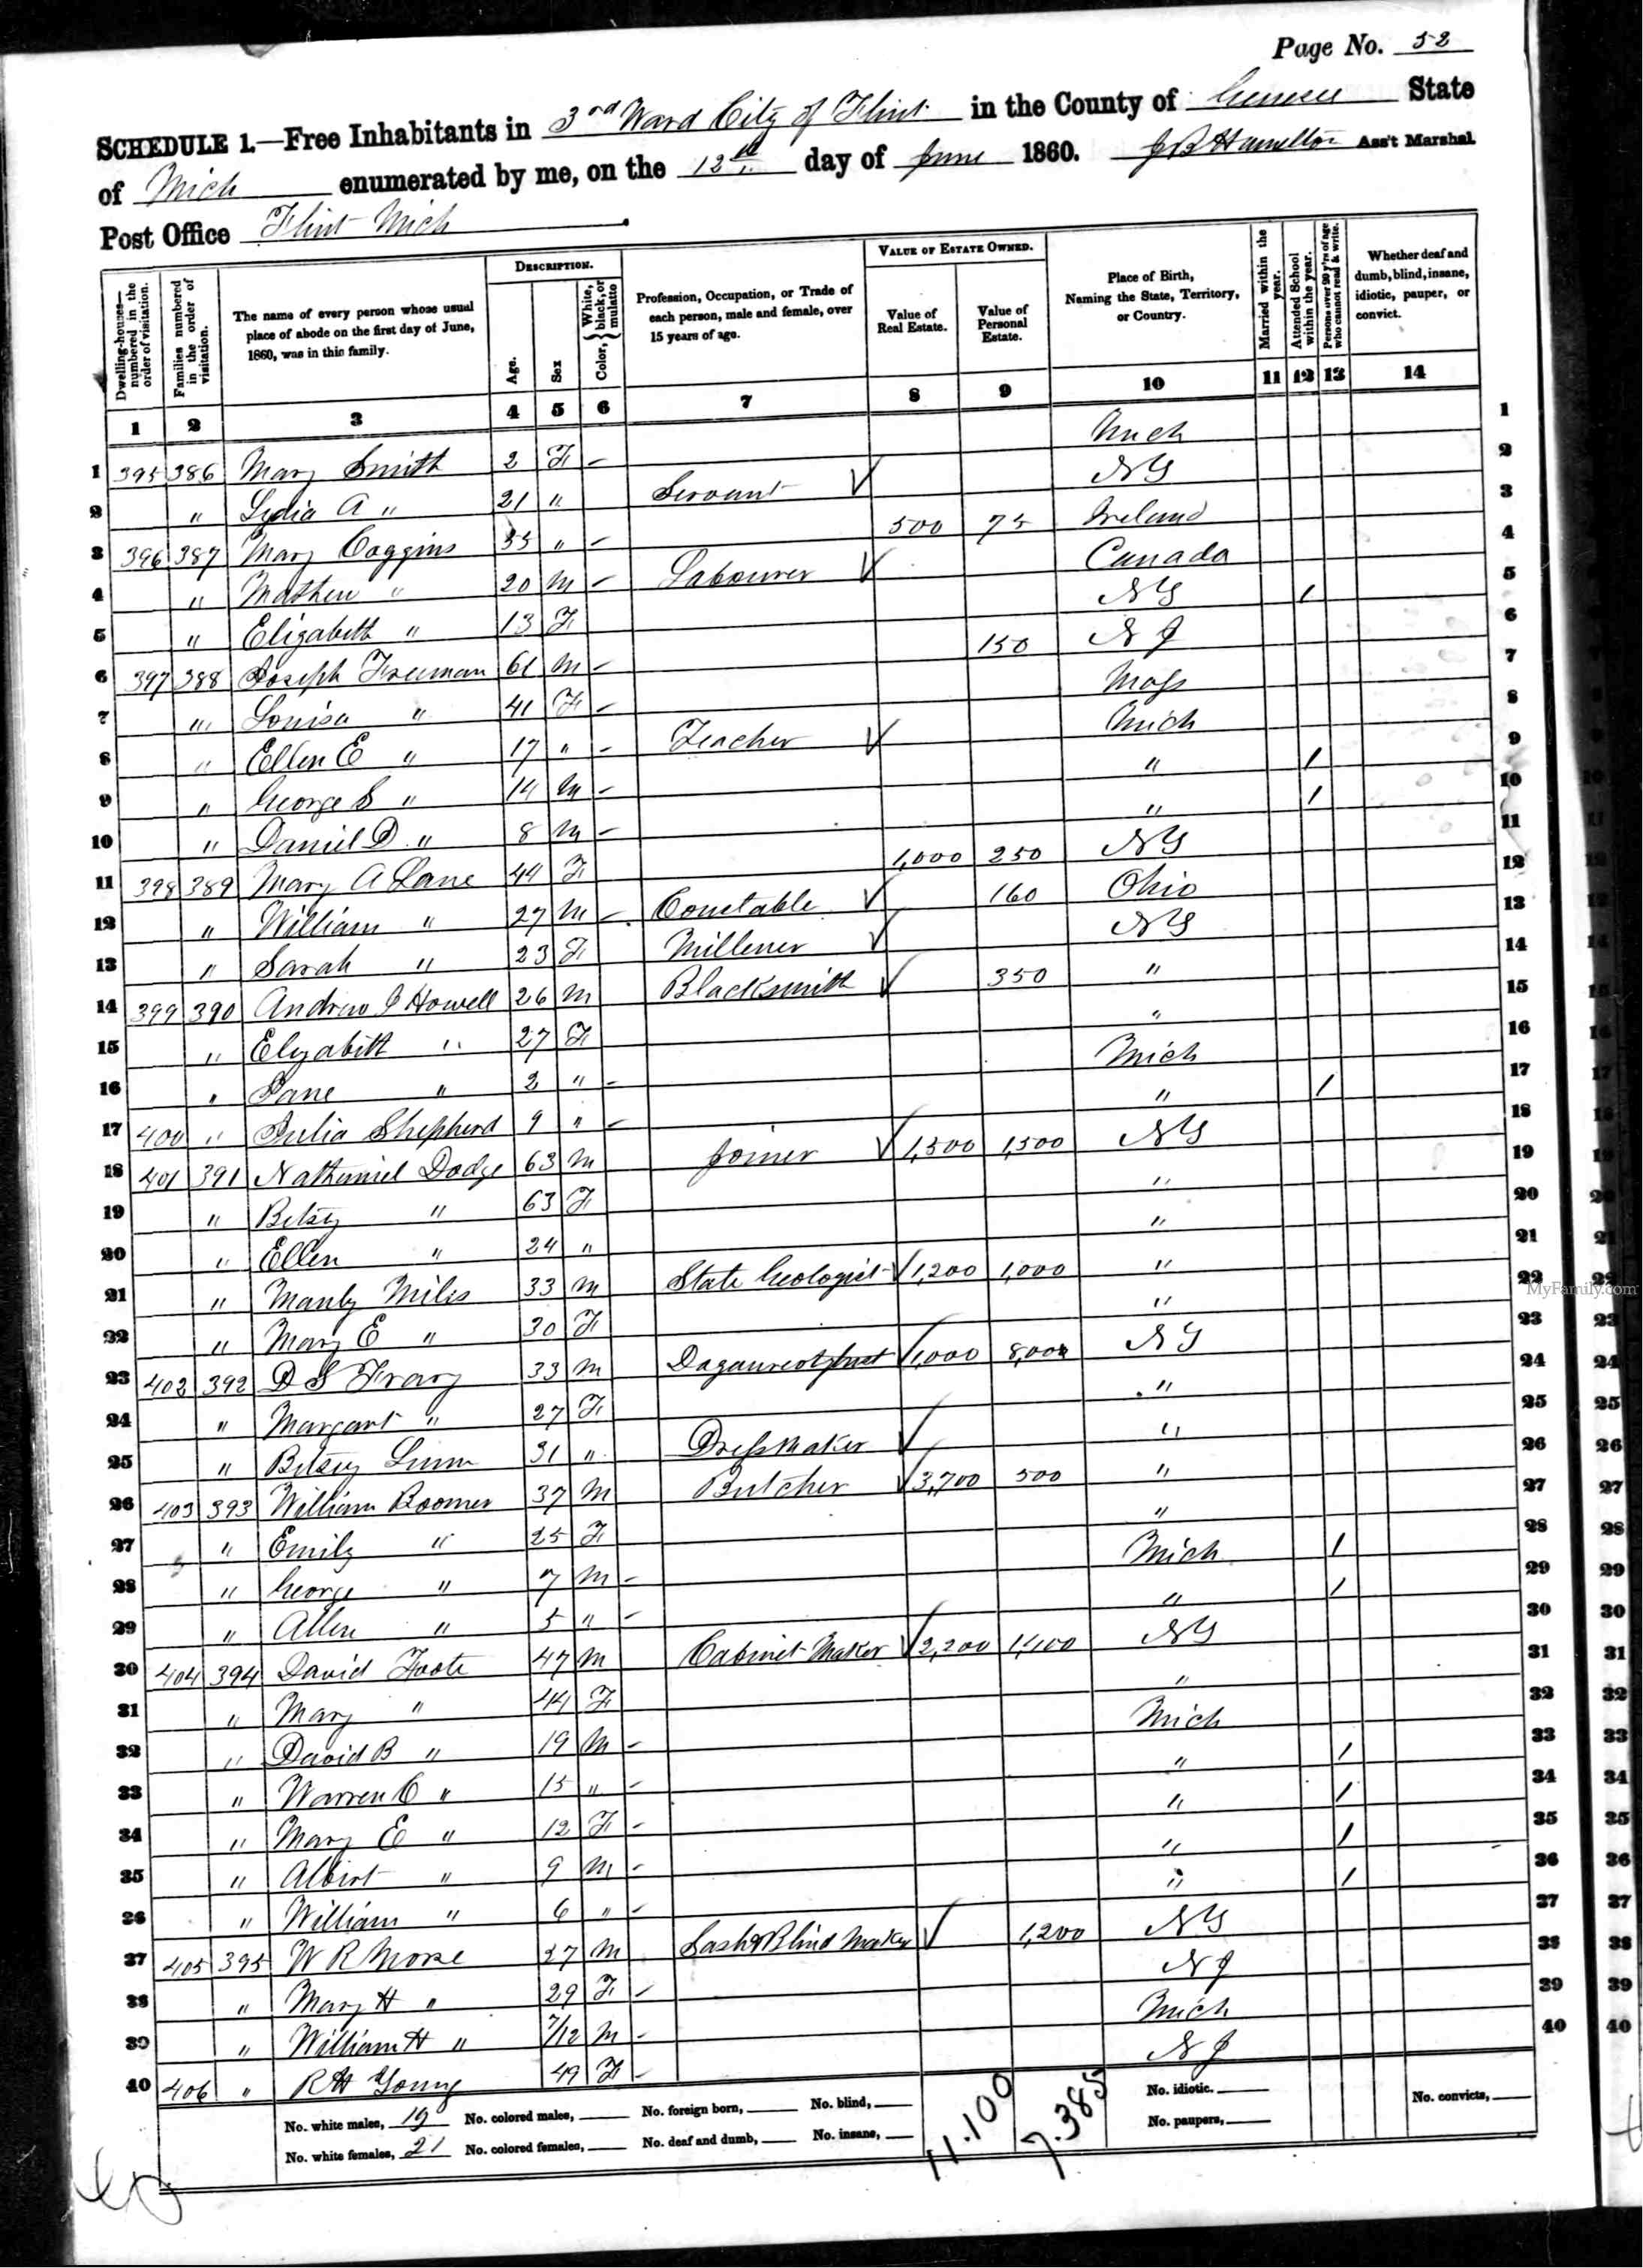 Page No. 52
SCHEDULE 1.—Free Inhabitants in 3rd Ward City of Flint in the County of Genesee State
of Mich enumerated by me, on the 12th day of June 1860. J B Hamilton Ass't Marshal.
Post Office Flint Mich
Dwelling-houses—numbered in the order of visitation.
Families numbered in the order of visitation.
The name of every person whose usual place of abode on the first day of June, 1860, was in this family.
DESCRIPTION.
Age.
Sex
Color, { White, black, or mulatto
Profession, Occupation, or Trade of each person, male and female, over 15 years of age.
VALUE OF ESTATE OWNED.
Value of Real Estate.
Value of Personal Estate.
Place of Birth, Naming the State, Territory, or Country.
Married within the year.
Attended School within the year.
Persons over 20 y'rs of age who cannot read & write.
Whether deaf and dumb, blind, insane, idiotic, pauper, or convict.
1 2 3 4 5 6 7 8 9 10 11 12 13 14
1 395 386 Mary Smith 2 F – Mich 1
2 " Lydia A " 21 " Servant ✓ NY 2
3 396 387 Mary Coggins 35 " – 500 75 Ireland 3
4 " Mathew " 20 M – Labourer ✓ Canada 4
5 " Elizabeth " 13 F NY / 5
6 397 388 Joseph Freeman 61 M – 150 NJ 6
7 " Louisa " 41 F – Mass 7
8 " Ellen E " 17 " – Teacher ✓ Mich 8
9 " George S " 14 M – " / 9
10 " Daniel D. " 8 M – " / 10
11 398 389 Mary A Lane 44 F 1,000 250 NY 11
12 " William " 27 M – Constable ✓ 160 Ohio 12
13 " Sarah " 23 F Millener ✓ NY 13
14 399 390 Andrew J Howell 26 M Blacksmith ✓ 350 " 14
15 " Elyabith " 27 F " 15
16 " Jane " 2 " – Mich 16
17 400 " Julia Shepherd 9 " – " / 17
18 401 391 Nathaniel Dodge 63 M Joiner ✓ 1,500 1,500 NY 18
19 " Betsy " 63 F " 19
20 " Ellen " 24 " " 20
21 " Manly Miles 33 M State Geologist ✓ 1,200 1,000 " 21
22 " Mary E " 30 F " 22
23 402 392 D S Frary 33 M ✓ 1,000 NY 23
24 " Margart " 27 F " 24
25 " Betsey 31 " Dressmaker ✓ " 25
26 403 393 William Boomer 37 M Butcher ✓ 3,700 500 " 26
27 " Emily " 25 F " 27
28 " George " 7 M – Mich / 28
29 " Allen " 5 " – " / 29
30 404 394 David Foote 47 M Cabinet Maker ✓ 2,200 NY 30
31 " Mary " 44 F " 31
32 " David B " 19 M – Mich 32
33 " Warren C " 15 " – " / 33
34 " Mary E " 12 F – " / 34
35 " Albirt " 9 M – " / 35
36 " William " 6 " – " / 36
37 405 395 W R Morse 27 M Sash & Blind Maker ✓ 1,200 NY 37
38 " Mary H " 29 F – NJ 38
39 " William H " 7/12 M – Mich 39
40 406 " R H Young 49 F – NJ 40
No. white males, 19 No. colored males, No. foreign born, No. blind, 11.100 7.385 No. idiotic. No. convicts,
No. white females, 21 No. colored females, No. deaf and dumb, No. insane, No. paupers,
MyFamily.com